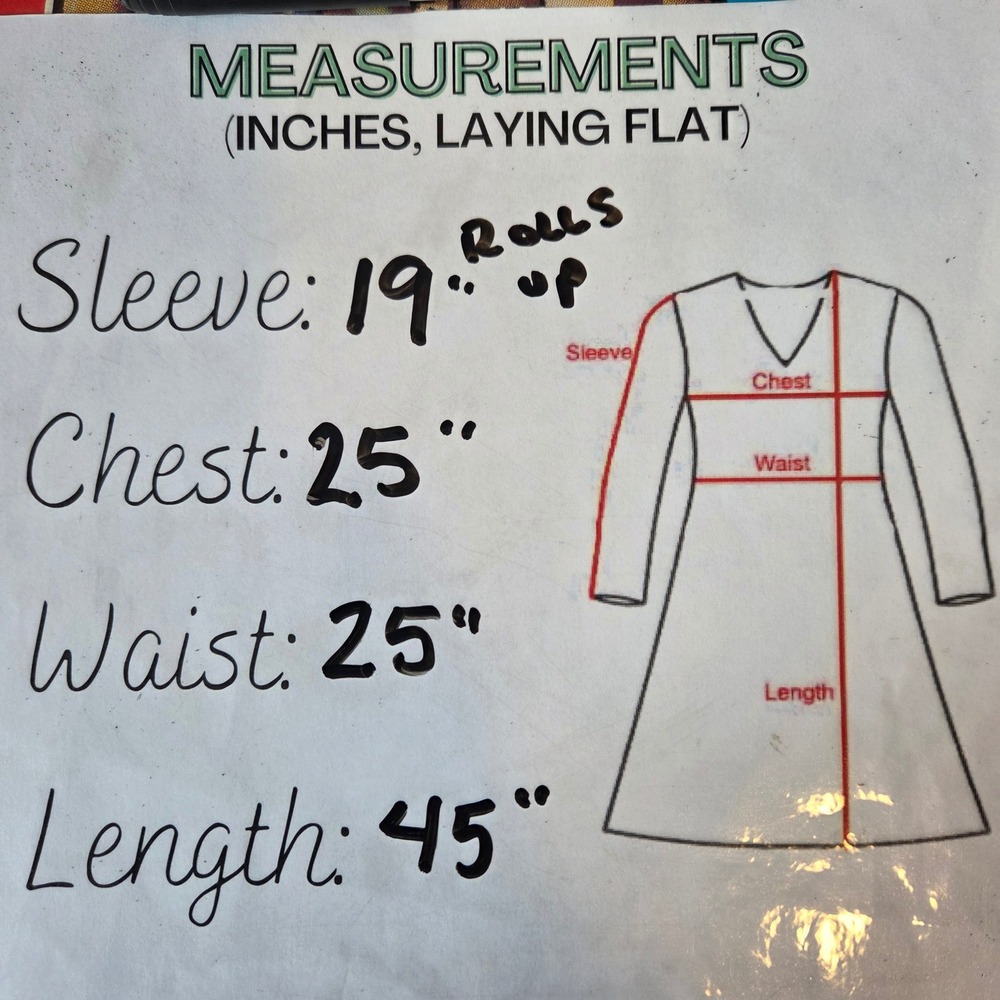 MEASUREMENTS
(INCHES, LAYING FLAT)
Sleeve: 19" ROLLS
UP
Chest: 25"
Waist: 25"
Length: 45"
Sleeve
Chest
Waist
Length